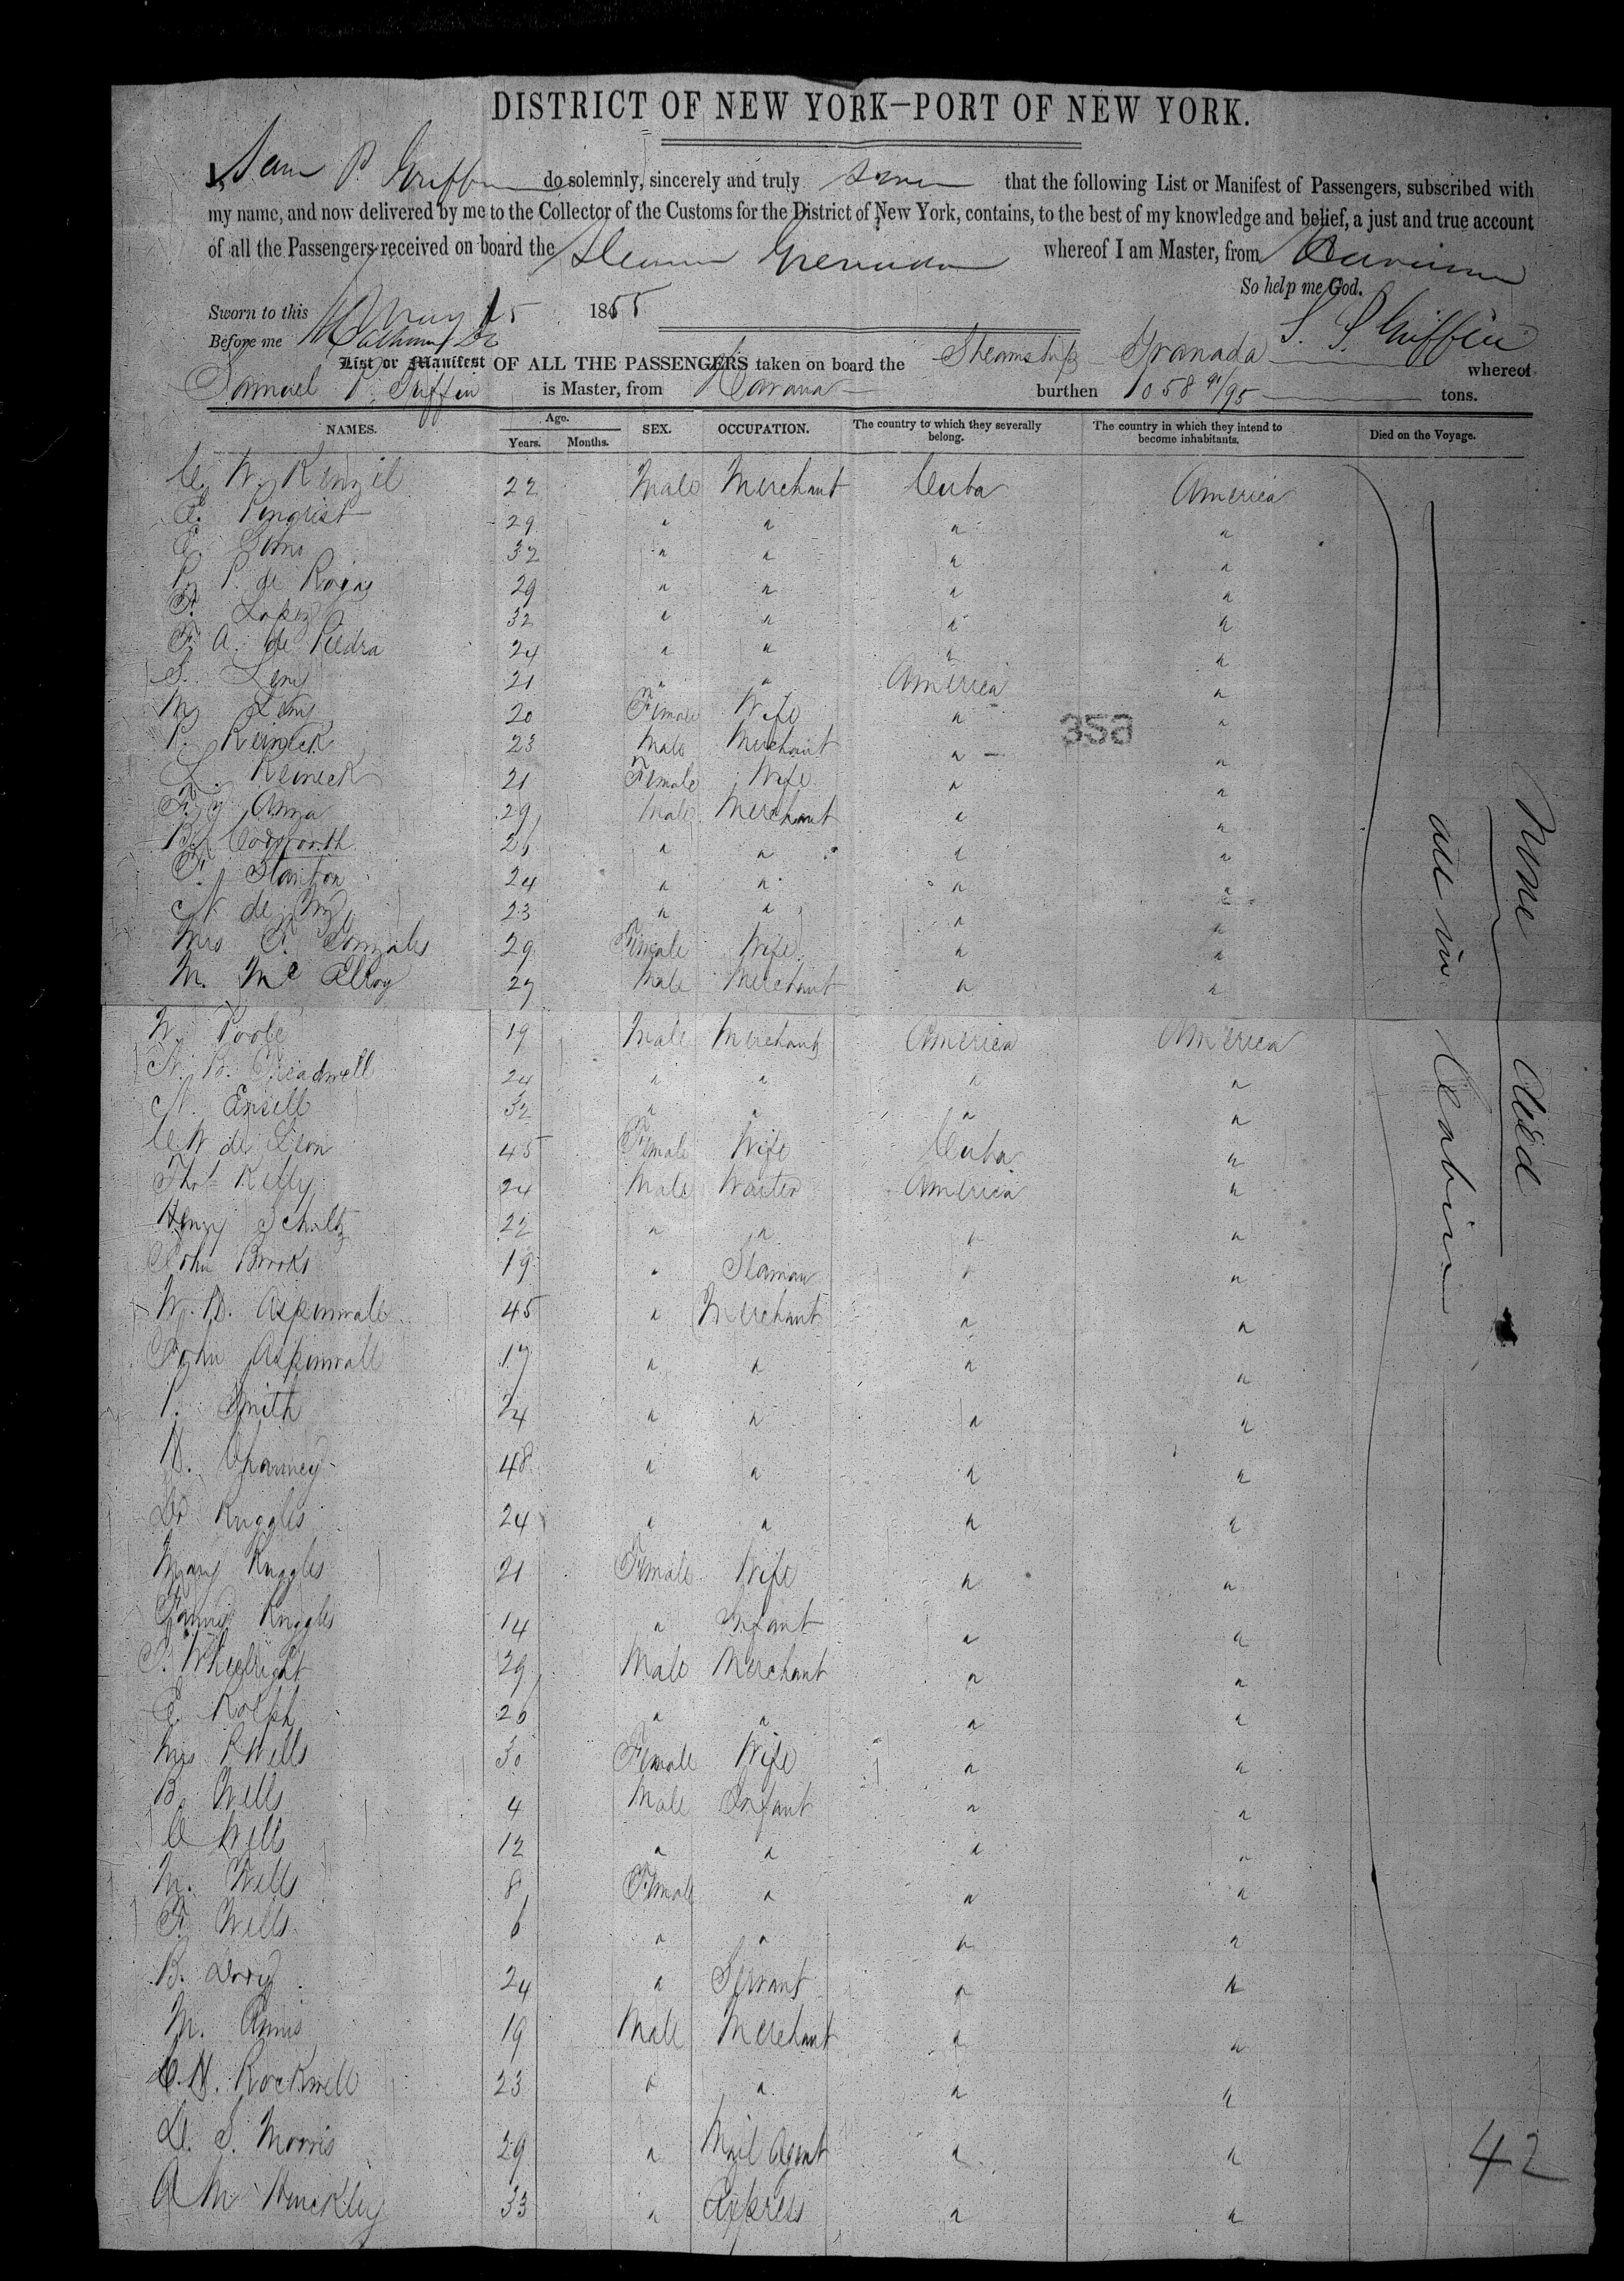 DISTRICT OF NEW YORK—PORT OF NEW YORK.
I, Sam P. Griffin do solemnly, sincerely and truly swear that the following List or Manifest of Passengers, subscribed with
my name, and now delivered by me to the Collector of the Customs for the District of New York, contains, to the best of my knowledge and belief, a just and true account
of all the Passengers received on board the Steamer Grenada whereof I am Master, from Havana
So help me God.
Sworn to this May 15 1855 S. P. Griffin
Before me
List or Manifest OF ALL THE PASSENGERS taken on board the Steamship Granada whereof
Samuel P. Griffin is Master, from Havana burthen 1058 91/95 tons.
NAMES. Age. Years. Months. SEX. OCCUPATION. The country to which they severally belong. The country in which they intend to become inhabitants. Died on the Voyage.
C. W. Kenzil 22 Male Merchant Cuba America
E. Penquist 29 " " " "
E. 32 " " " "
P. P. de Rojas 29 " " " "
F. Lopez 32 " " " "
F. A. de Piedra 24 " " " "
S. Levy 21 " " America "
M. Levy 20 Female Wife " "
P. Reineck 23 Male Merchant " "
L. Reineck 21 Female Wife " "
F. Y. Anza 29 Male Merchant " "
B. Codsworth 21 " " " "
F. Stanton 24 " " " "
N. de 23 " " " "
Mrs P. Gonzales 29 Female Wife " "
M. Mc Elroy 27 Male Merchant " "
W. Poole 19 Male Merchant America America
W. B. Treadwell 24 " " " "
N. Ensell 32 " " " "
C. W de Leon 45 Female Wife Cuba "
Thos Kelly 24 Male Waiter America "
Henry Schultz 22 " " " "
John Brooks 19 " Seaman " "
W. H. Aspinwall 45 " Merchant " "
John Aspinwall 17 " " " "
P. Smith 24 " " " "
D. Charney 48 " " " "
Dr Ruggles 24 " " " "
Mary Ruggles 21 Female Wife " "
Fannie Ruggles 14 " Infant " "
S. Wheelright 29 Male Merchant " "
E. Rolph 26 " " " "
Mrs P Wells 30 Female Wife " "
B. Wells 4 Male Infant " "
C Wells 12 " " " "
M. Wells 8 Female " " "
F. Wells 6 " " " "
B. 24 " Servant " "
M. Annis 19 Male Merchant " "
C. H. Rockwell 23 " " " "
D. S. Morris 29 " Mail Agent " "
A M Hinckley 33 " Express " "
None died
all in Cabin
358
42